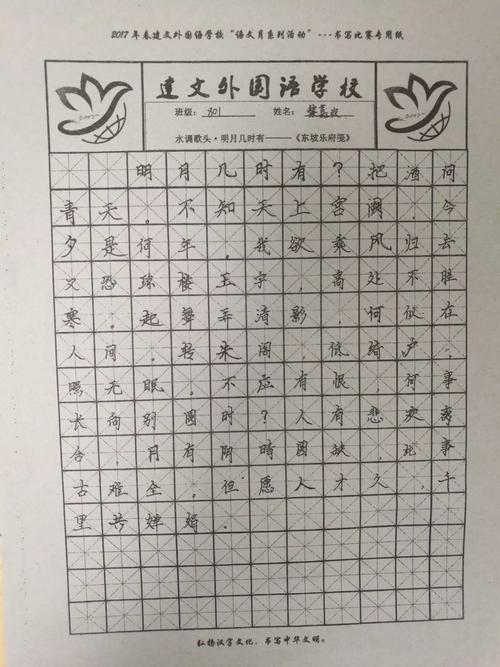 2017年春建文外国语学校“语文月系列活动”---书写比赛专用纸
建文外国语学校
班级： 801 姓名：
水调歌头·明月几时有——《东坡乐府笺》
明月几时有？把酒问
青天。不知天上宫阙，今
夕是何年。我欲乘风归去
又恐琼楼玉宇，高处不胜
寒。起舞弄清影，何似在
人间。转朱阁，低绮户，
照无眠。不应有恨，何事
长向别圆时？人有悲欢离
合，月有阴晴圆缺，此事
古难全。但愿人才久，千
里共婵娟.
弘扬汉字文化，书写中华文明。